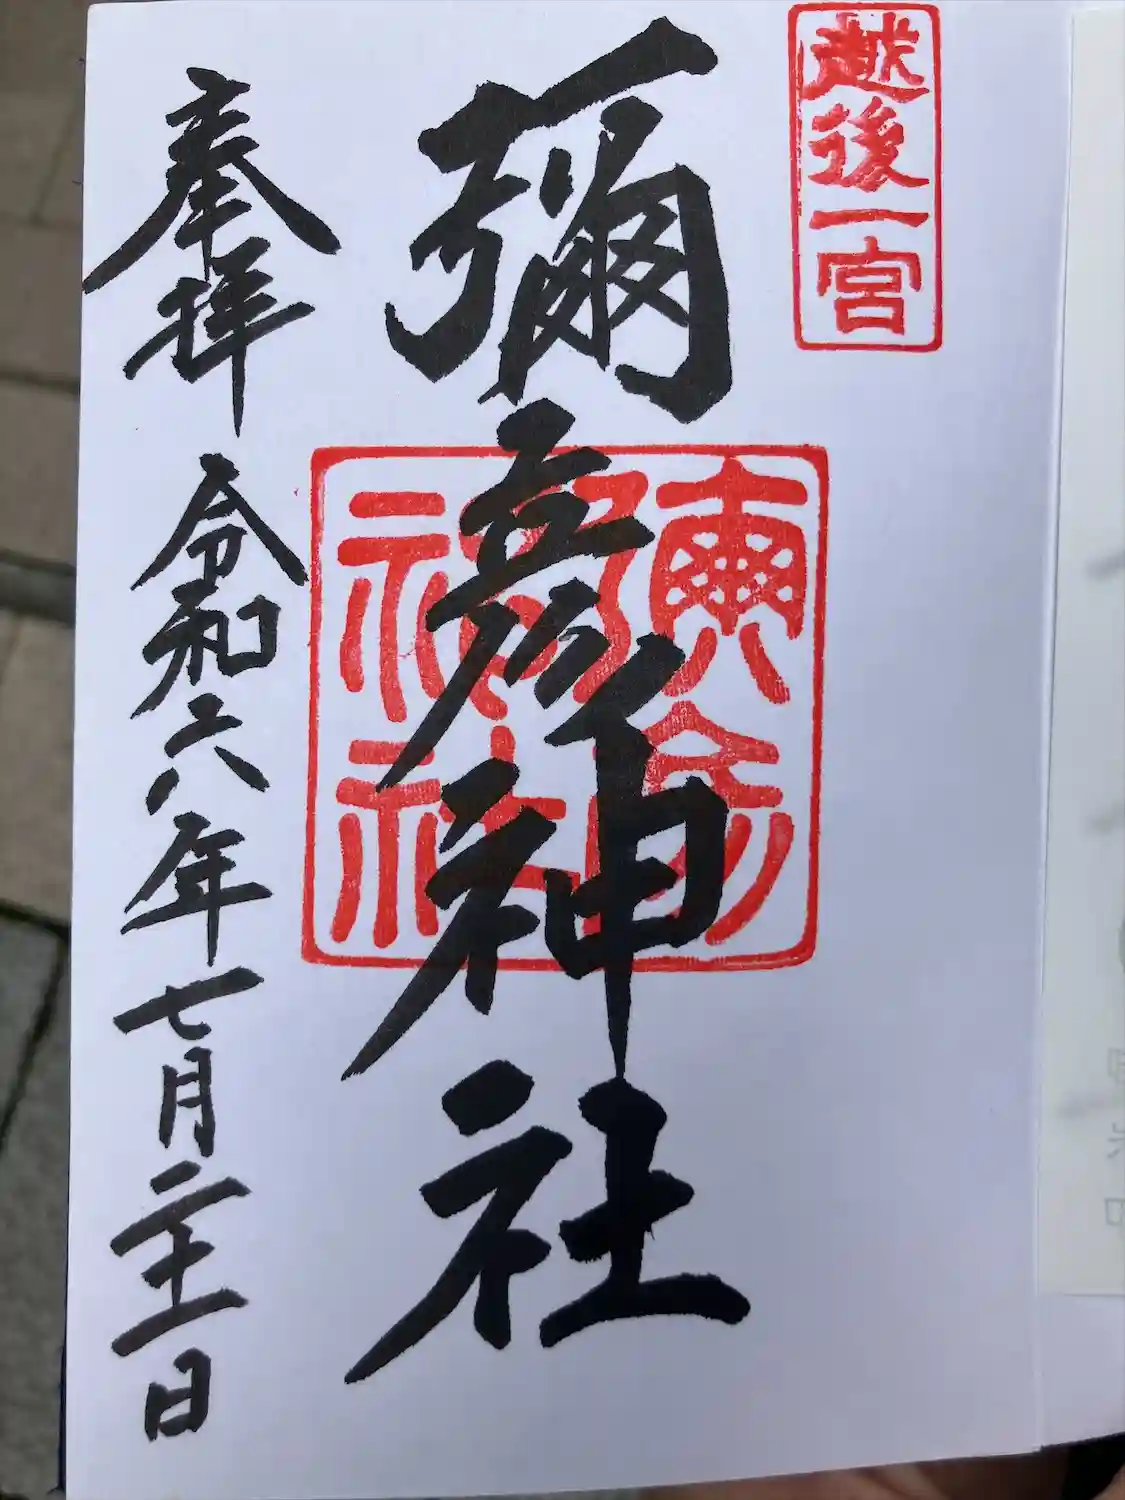 越後一宮
彌彦神社
彌彦
神社
奉拝 令和六年七月二十一日